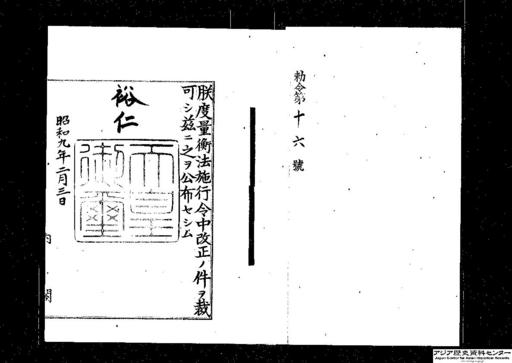 勅令第十六號
朕度量衡法施行令中改正ノ件ヲ裁
可シ茲ニ之ヲ公布セシム
裕仁
天皇御璽
昭和九年二月三日
内閣
アジア歴史資料センター
Japan Center for Asian Historical Records